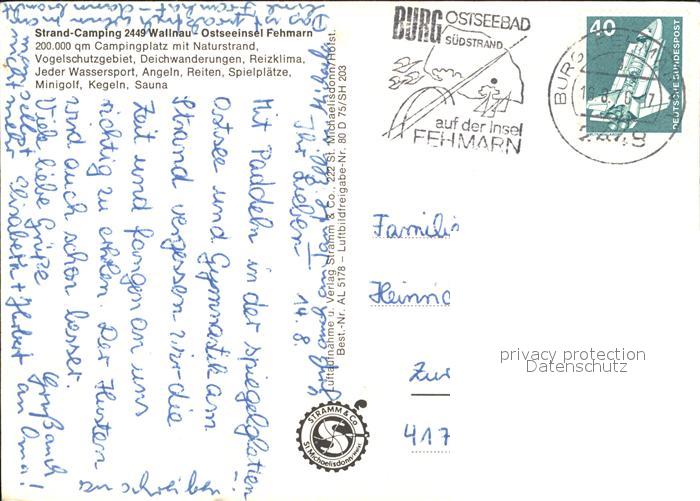 Strand-Camping 2449 Wallnau · Ostseeinsel Fehmarn
200.000 qm Campingplatz mit Naturstrand,
Vogelschutzgebiet, Deichwanderungen, Reizklima,
Jeder Wassersport, Angeln, Reiten, Spielplätze,
Minigolf, Kegeln, Sauna
BURG OSTSEEBAD
SÜDSTRAND
auf der Insel
FEHMARN
BURG
2448
40
DEUTSCHE BUNDESPOST
Luftaufnahme u. Verlag Stramm & Co., 222 St. Michaelisdonn/Holst.
Best.-Nr. AL 5178 – Luftbildfreigabe-Nr. 80 D 75/SH 203
STRAMM & Co
St Michaelisdonn/Holst
14.8.
Ihr Lieben
Mit Paddeln in der spiegelglatten
Ostsee und Gymnastik am
Strand vergessen wir die
Zeit und fangen an uns
richtig zu erholen. Der Husten
wird auch schon besser.
Viele liebe Grüße
Elisabeth + Herbert
Gruß auch
an Oma!
Familie
Heinric
Zur
417
privacy protection
Datenschutz